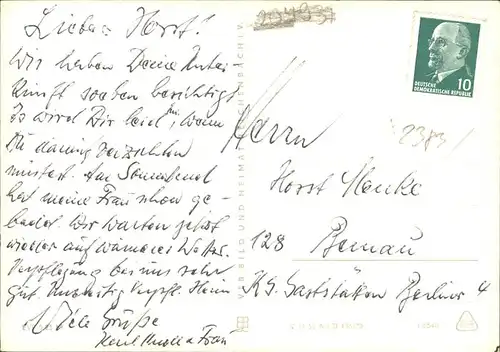 Lieber Horst!
Wir haben Deine Unter-
kunft soeben besichtigt
Es wird Dir leid, wenn
Du darauf verzichten
müßtest. Am Sonnabend
hat meine Frau schon ge-
badet. Wir warten jetzt
wieder auf wärmeres Wetter.
Verpflegung bei uns sehr
gut.
Viele Grüße
u. Frau
DEUTSCHE
DEMOKRATISCHE REPUBLIK
10
2383/
Herrn
Horst Henke
128 Bernau
Gaststätten Berliner 4
VEB BILD UND HEIMAT REICHENBACH I. V.